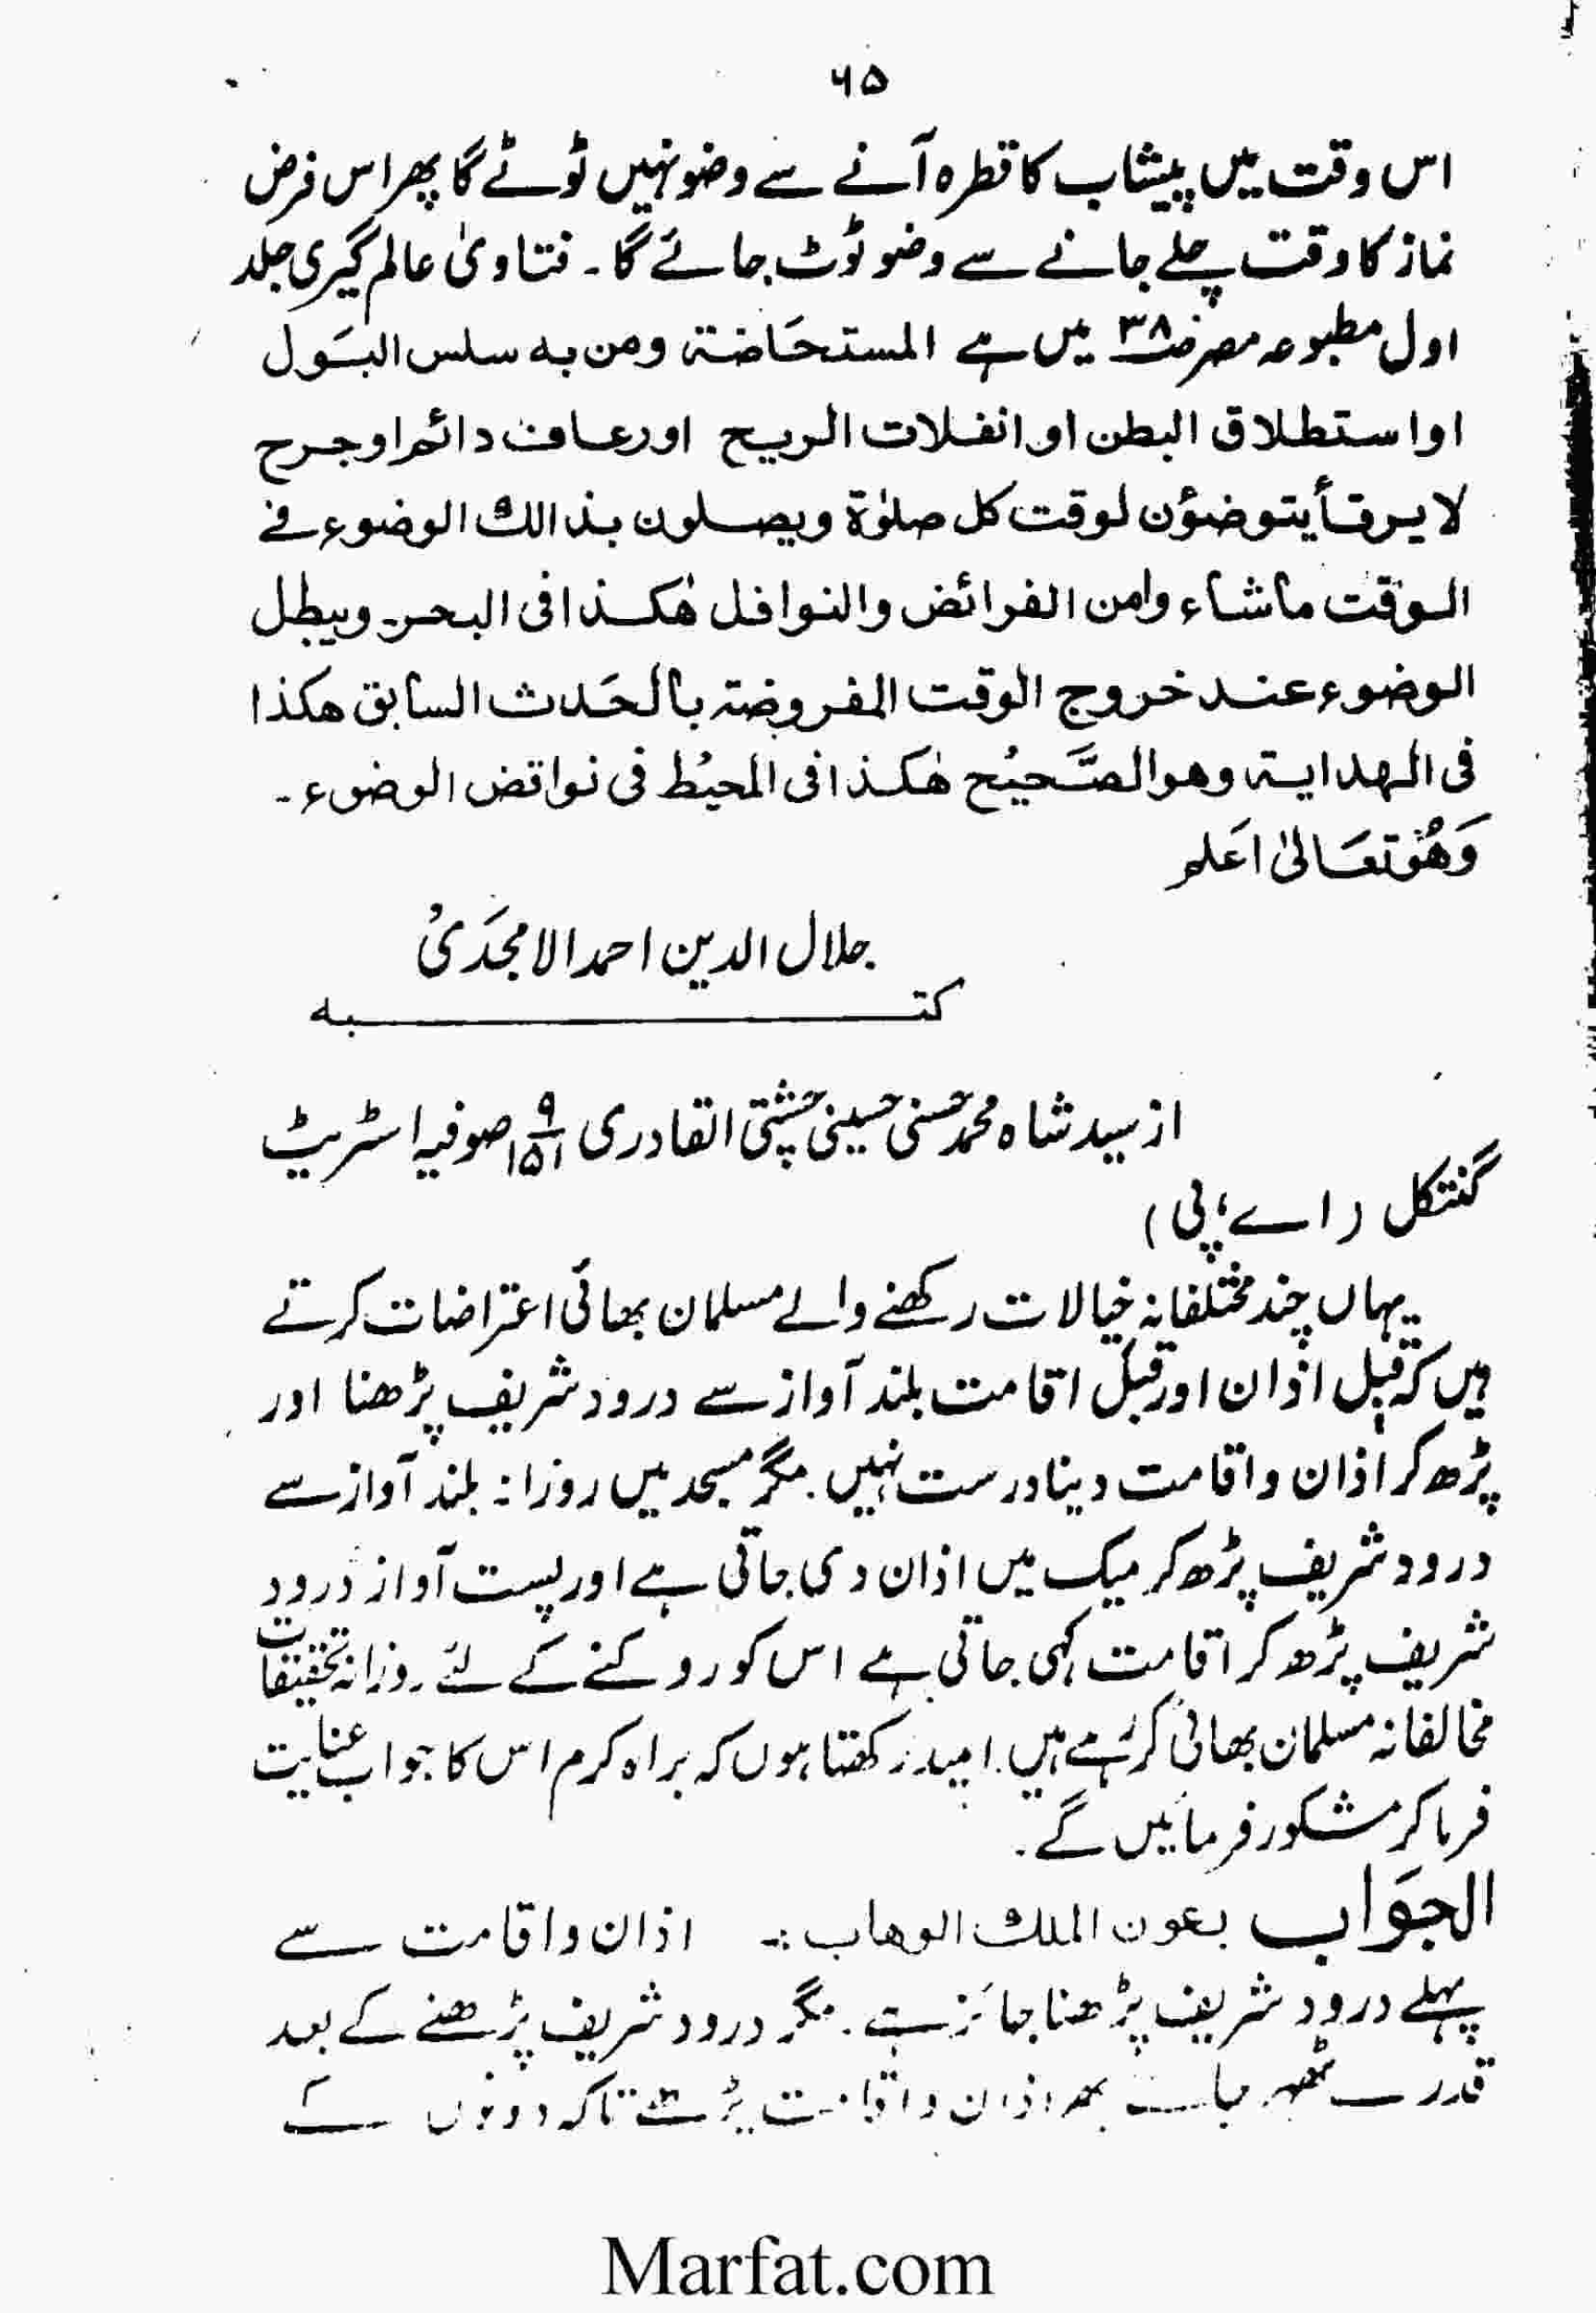 ۶۵
اس وقت میں پیشاب کا قطرہ آنے سے وضو نہیں ٹوٹے گا پھر اس فرض
نماز کا وقت چلے جانے سے وضو ٹوٹ جائے گا۔ فتاویٰ عالم گیری جلد
اول مطبوعہ مصر ص۳۸ میں ہے المستحَاضۃ ومن بہ سلس البَول
اواستطلاق البطن او انفلات الریح اورعاف دائم اوجرح
لایرقأ یتوضؤن لوقت کل صلوٰۃ ویصلون بذالک الوضوء فی
الوقت ماشاء وامن الفرائض والنوافل ھٰکذا فی البحر۔ ویبطل
الوضوء عند خروج الوقت المفروضۃ بالحَدث السابق ھکذا
فی الھدایۃ وھوالصَّحیْح ھٰکذا فی المحیْط فی نواقض الوضوء۔
وَھُوَتعَالیٰ اعَلم
جلال الدین احمد الامجدَیْ
کتــــــــبہ
از سید شاہ محمد حسنی حسینی چشتی القادری ۹/۱۵۱ صوفیہ اسٹریٹ
گنتکل (اے، پی)
یہاں چند مختلفانہ خیالات رکھنے والے مسلمان بھائی اعتراضات کرتے
ہیں کہ قبل اذان اور قبل اقامت بلند آواز سے درود شریف پڑھنا اور
پڑھ کر اذان واقامت دینا درست نہیں۔ مگر مسجد میں روزانہ بلند آواز سے
درود شریف پڑھ کر میک میں اذان دی جاتی ہے اور پست آواز درود
شریف پڑھ کر اقامت کہی جاتی ہے اس کو روکنے کے لئے روزانہ تحقیقات
مخالفانہ مسلمان بھائی کر رہے ہیں۔ امید رکھتا ہوں کہ براہ کرم اس کا جواب عنایت
فرما کر مشکور فرمائیں گے۔
الجوَاب بعون الملک الوھاب:۔ اذان واقامت سے
پہلے درود شریف پڑھنا جائز ہے۔ مگر درود شریف پڑھنے کے بعد
قدرے ٹھہر جائے پھر اذان واقامت پڑھے تاکہ دونوں کے
Marfat.com